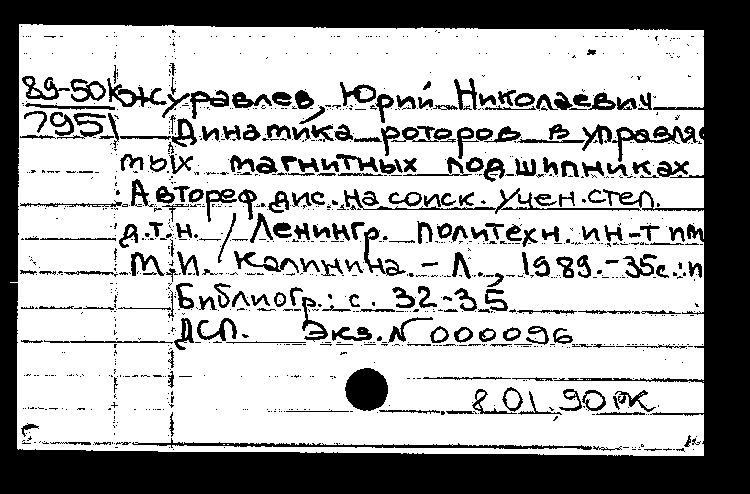 89-50к Журавлев, Юрий Николаевич
7951 Динамика роторов в управляе
мых магнитных подшипниках
Автореф. дис. на соиск. учен. степ.
д.т.н. / Ленингр. политехн. ин-т им
М.И. Калинина. - Л., 1989. - 35с.:и
Библиогр.: с. 32-35
ДСП. Экз. № 000096
8.01.90 РК